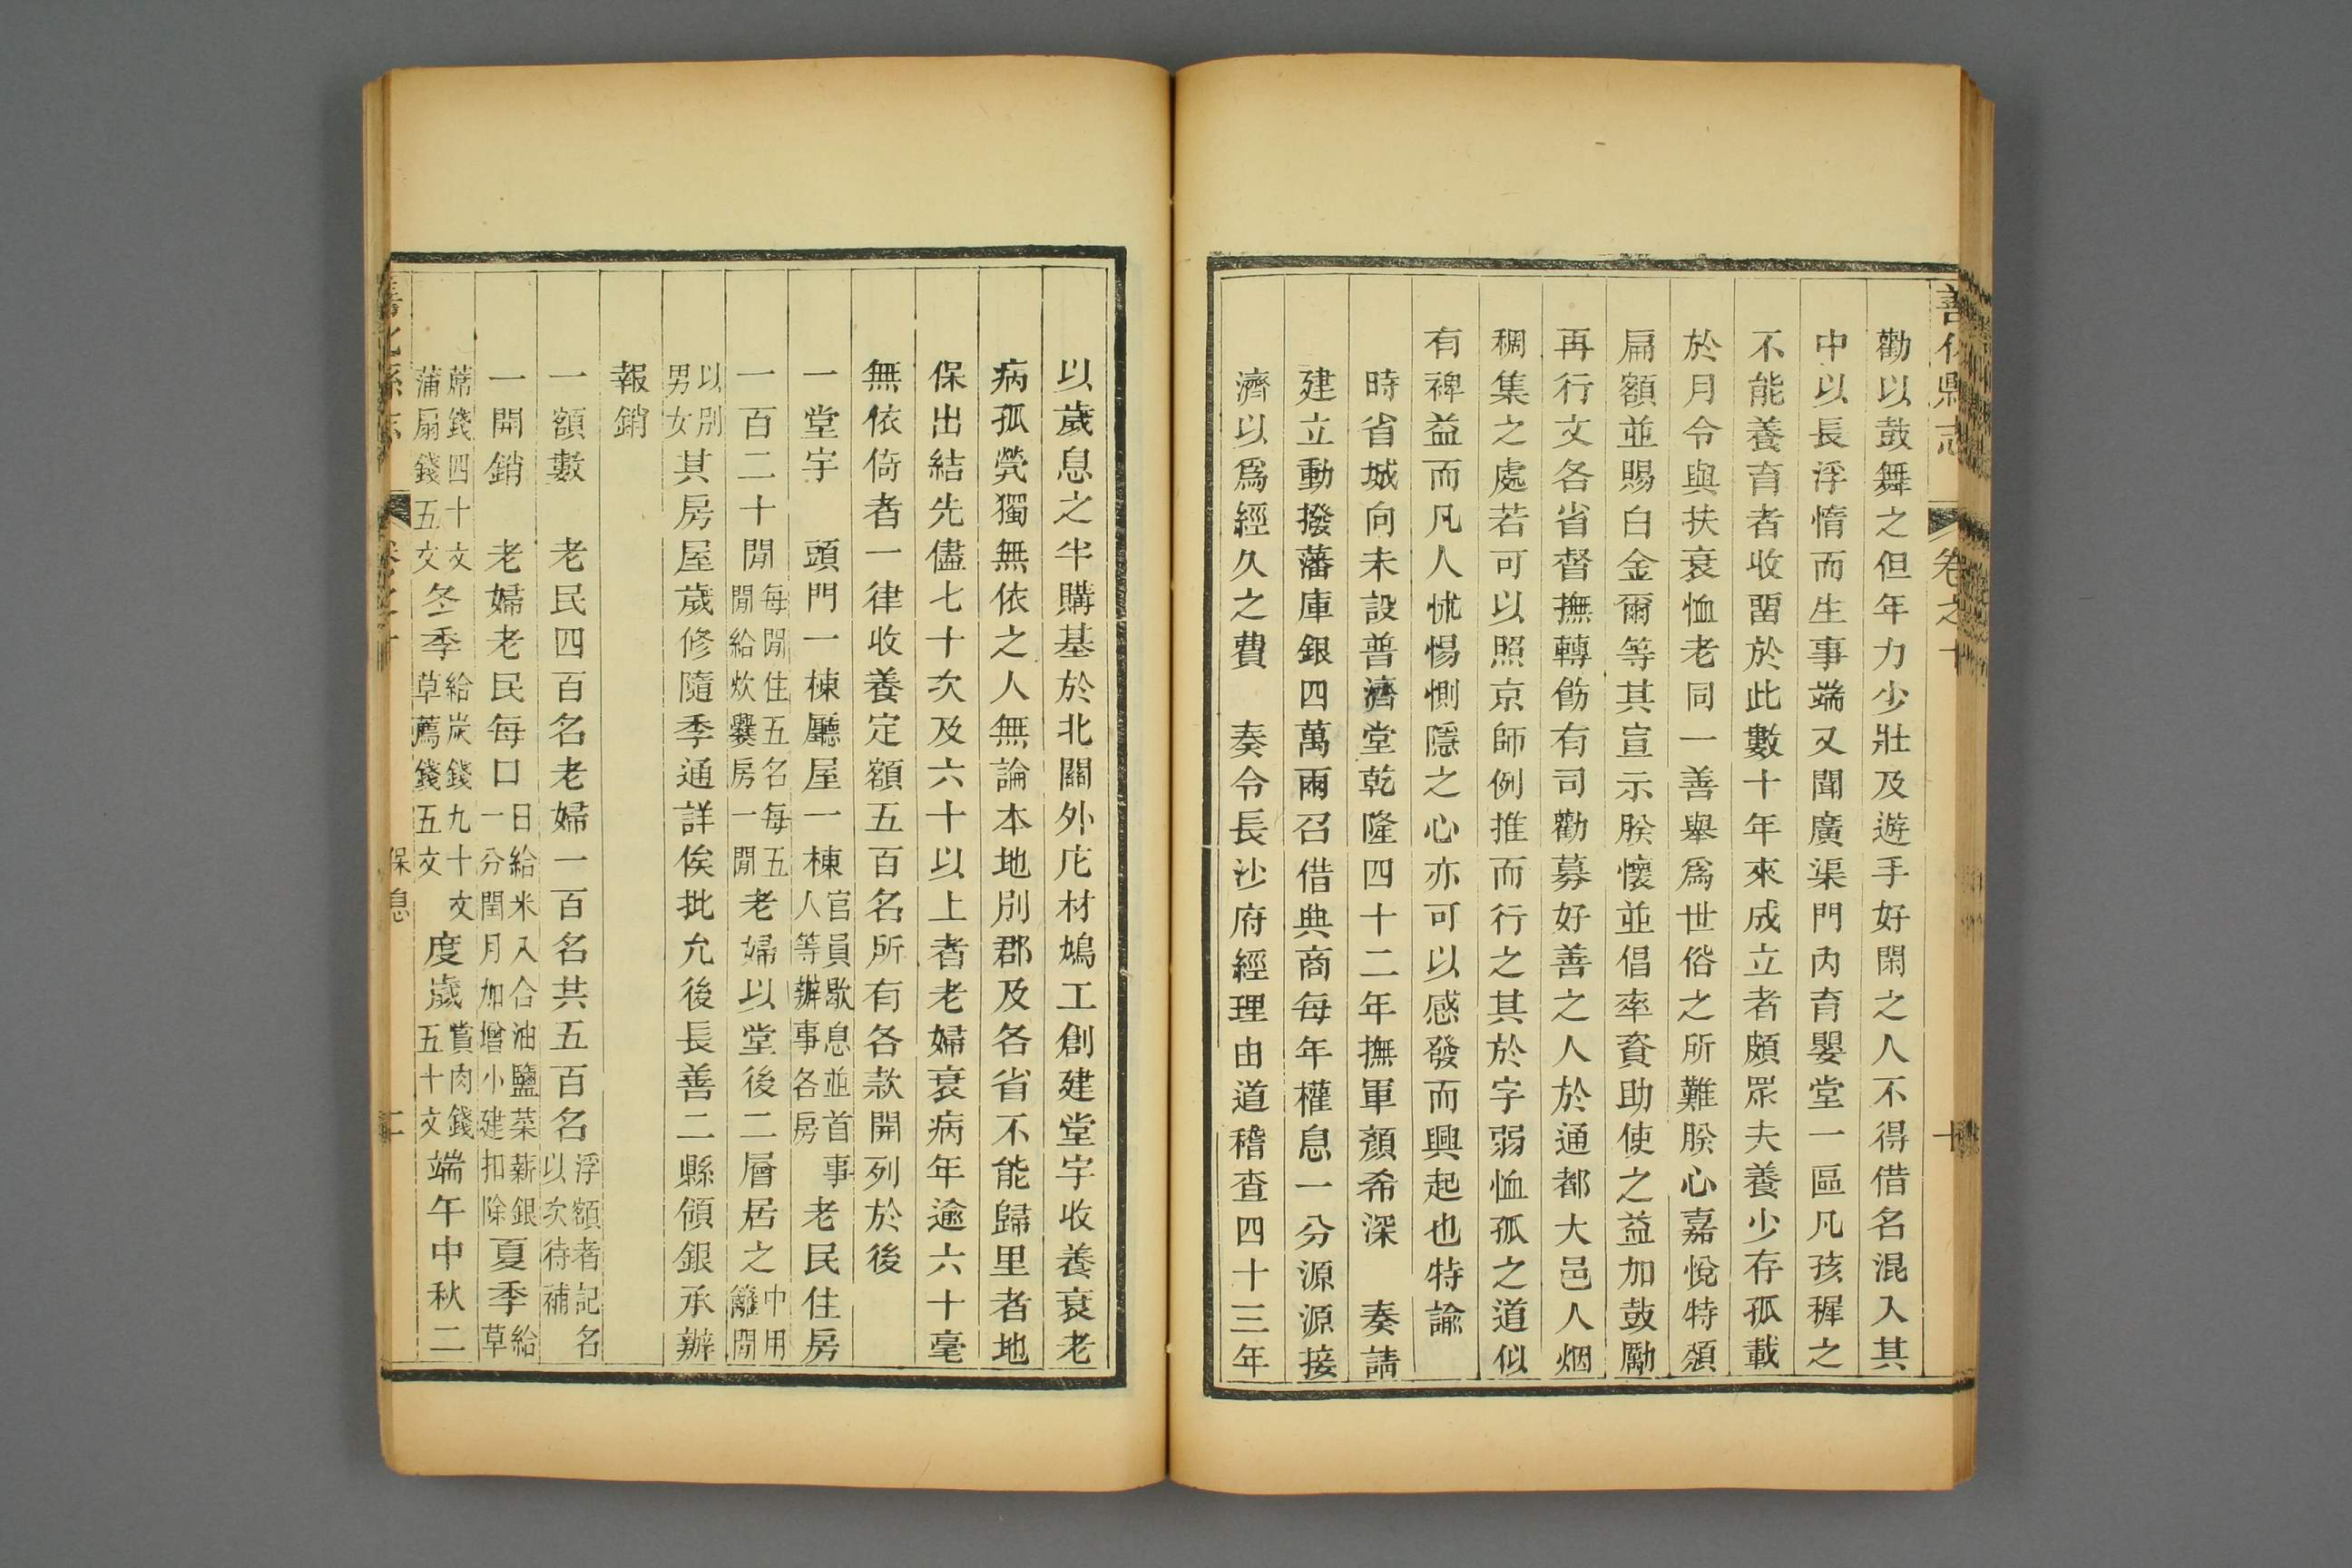 善化縣志 卷之十
勸以鼓舞之但年力少壯及遊手好閑之人不得借名混入其
中以長浮惰而生事端又聞廣渠門內育嬰堂一區凡孩穉之
不能養育者收畱於此數十年來成立者頗眾夫養少存孤載
於月令與扶衰恤老同一善舉爲世俗之所難朕心嘉悅特頒
扁額並賜白金爾等其宣示朕懷並倡率資助使之益加鼓勵
再行文各省督撫轉飭有司勸募好善之人於通都大邑人烟
稠集之處若可以照京師例推而行之其於字弱恤孤之道似
有裨益而凡人怵惕惻隱之心亦可以感發而興起也特諭
時省城向未設普濟堂乾隆四十二年撫軍顏希深 奏請
建立動撥藩庫銀四萬兩召借典商每年權息一分源源接
濟以爲經久之費 奏令長沙府經理由道稽查四十三年
以歲息之半購基於北關外庀材鳩工創建堂宇收養衰老
病孤煢獨無依之人無論本地別郡及各省不能歸里者地
保出結先儘七十次及六十以上者老婦衰病年逾六十毫
無依倚者一律收養定額五百名所有各款開列於後
一堂宇 頭門一棟廳屋一棟官員歇息並首事人等辦事各房老民住房
一百二十閒每閒住五名每五閒給炊爨房一閒老婦以堂後二層居之中用籬閒
以別男女其房屋歲修隨季通詳俟批允後長善二縣領銀承辦
報銷
一額數 老民四百名老婦一百名共五百名浮額者記名以次待補
一開銷 老婦老民每口日給米八合油鹽菜薪銀一分閏月加增小建扣除夏季給草
蓆錢四十文蒲扇錢五文冬季給炭錢九十文草薦錢五文度歲賞肉錢五十文端午中秋二
善化縣志 卷之十 保息